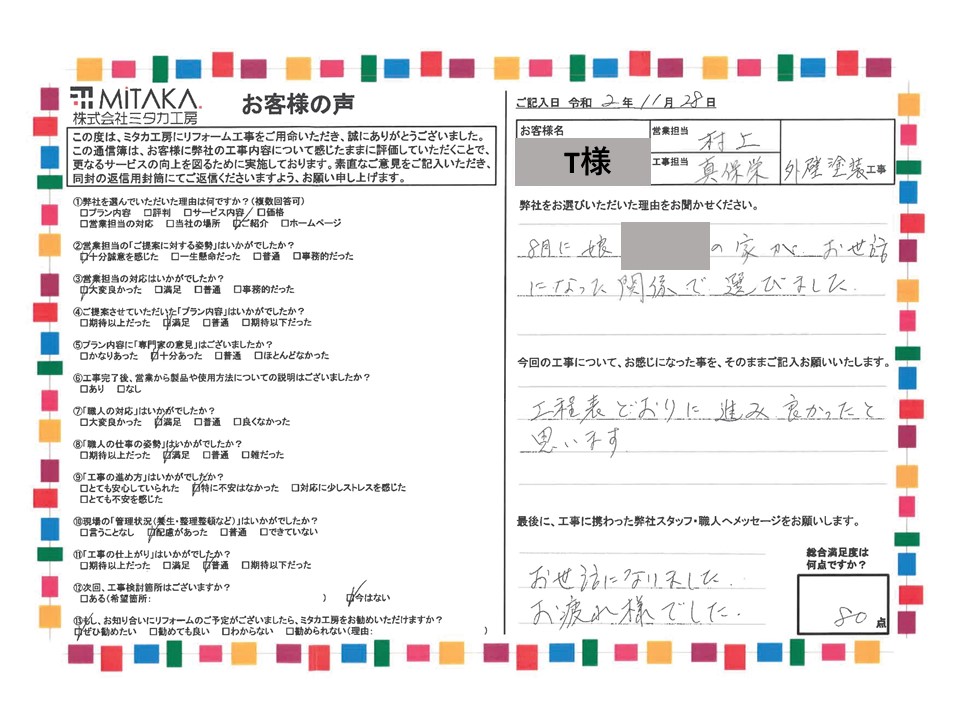 MiTAKA
株式会社ミタカ工房
お客様の声
この度は、ミタカ工房にリフォーム工事をご用命いただき、誠にありがとうございました。
この通信簿は、お客様に弊社の工事内容について感じたままに評価していただくことで、
更なるサービスの向上を図るために実施しております。素直なご意見をご記入いただき、
同封の返信用封筒にてご返信くださいますよう、お願い申し上げます。
①弊社を選んでいただいた理由は何ですか?(複数回答可)
□プラン内容 □評判 □サービス内容 □価格
□営業担当の対応 □当社の場所 ☑ご紹介 □ホームページ
②営業担当の「ご提案に対する姿勢」はいかがでしたか?
☑十分誠意を感じた □一生懸命だった □普通 □事務的だった
③営業担当の対応はいかがでしたか?
☑大変良かった □満足 □普通 □事務的だった
④ご提案させていただいた「プラン内容」はいかがでしたか?
□期待以上だった ☑満足 □普通 □期待以下だった
⑤プラン内容に「専門家の意見」はございましたか?
□かなりあった ☑十分あった □普通 □ほとんどなかった
⑥工事完了後、営業から製品や使用方法についての説明はございましたか?
□あり □なし
⑦「職人の対応」はいかがでしたか?
□大変良かった ☑満足 □普通 □良くなかった
⑧「職人の仕事の姿勢」はいかがでしたか?
□期待以上だった ☑満足 □普通 □雑だった
⑨「工事の進め方」はいかがでしたか?
□とても安心していられた ☑特に不安はなかった □対応に少しストレスを感じた
□とても不安を感じた
⑩現場の「管理状況(養生・整理整頓など)」はいかがでしたか?
□言うことなし ☑配慮があった □普通 □できていない
⑪「工事の仕上がり」はいかがでしたか?
□期待以上だった □満足 ☑普通 □期待以下だった
⑫次回、工事検討箇所はございますか?
□ある(希望箇所: ) ☑今はない
⑬もし、お知り合いにリフォームのご予定がございましたら、ミタカ工房をお勧めいただけますか?
☑ぜひ勧めたい □勧めても良い □わからない □勧められない(理由: )
ご記入日 令和 2 年 11 月 28 日
お客様名
T様
営業担当 村上
工事担当 真保栄
外壁塗装工事
弊社をお選びいただいた理由をお聞かせください。
8月に娘 の家が、お世話
になった関係で選びました。
今回の工事について、お感じになった事を、そのままご記入お願いいたします。
工程表どおりに進み良かったと
思います
最後に、工事に携わった弊社スタッフ・職人へメッセージをお願いします。
お世話になりました。
お疲れ様でした。
総合満足度は
何点ですか?
80 点